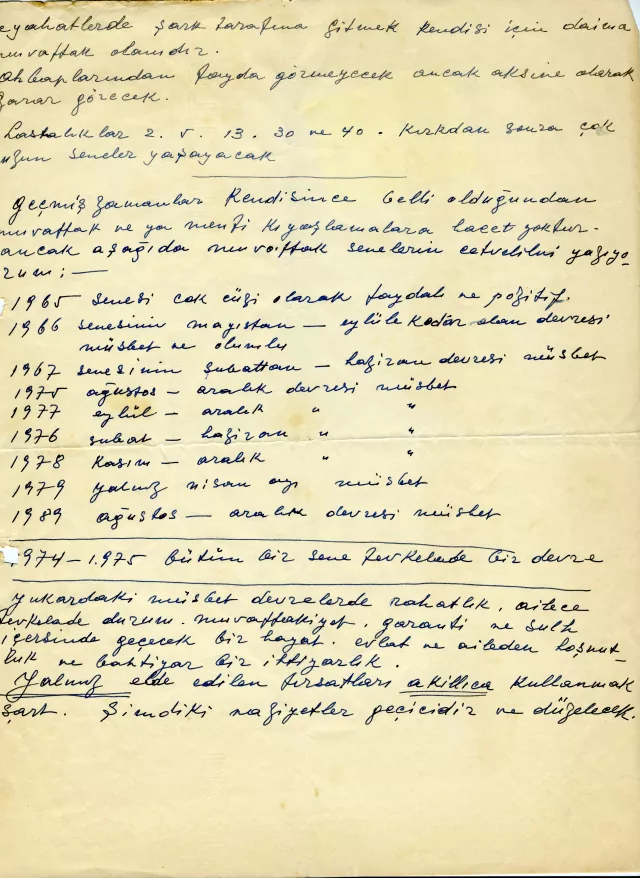 eyahatlerde şark tarafına gitmek kendisi için daima
muvaffak olandır.
Ahbaplarından fayda görmeyecek ancak aksine olarak
zarar görecek.
Hastalıklar 2. 5. 13. 30 ve 40. Kırkdan sonra çok
uzun seneler yaşayacak
Geçmiş zamanlar kendisince belli olduğundan
muvaffak ve ya menfi kıyaşlamalara hacet yoktur.
ancak aşağıda muvaffak senelerin cetvelini yazıyo-
rum: —
1965 senesi çok cüzi olarak faydalı ve pozitif.
1966 senesinin mayıstan — eylüle kadar olan devresi
müsbet ve olumlu
1967 senesinin şubattan — haziran devresi müsbet
1975 ağustos — aralık devresi müsbet
1977 eylül — aralık " "
1976 şubat — haziran " "
1978 kasım — aralık " "
1979 yalnız nisan ayı müsbet
1989 ağustos — aralık devresi müsbet
1974 — 1975 bütün bir sene fevkelade bir devre
yukardaki müsbet devrelerde rahatlık, ailece
fevkelade durum. muvaffakiyet, garanti ve sulh
içersinde geçecek bir hayat. evlat ve aileden hoşnut-
luk ve bahtiyar bir ihtiyarlık.
Yalnız elde edilen fırsatları akıllıca kullanmak
şart. Şimdiki vaziyetler geçicidir ve düzelecek.